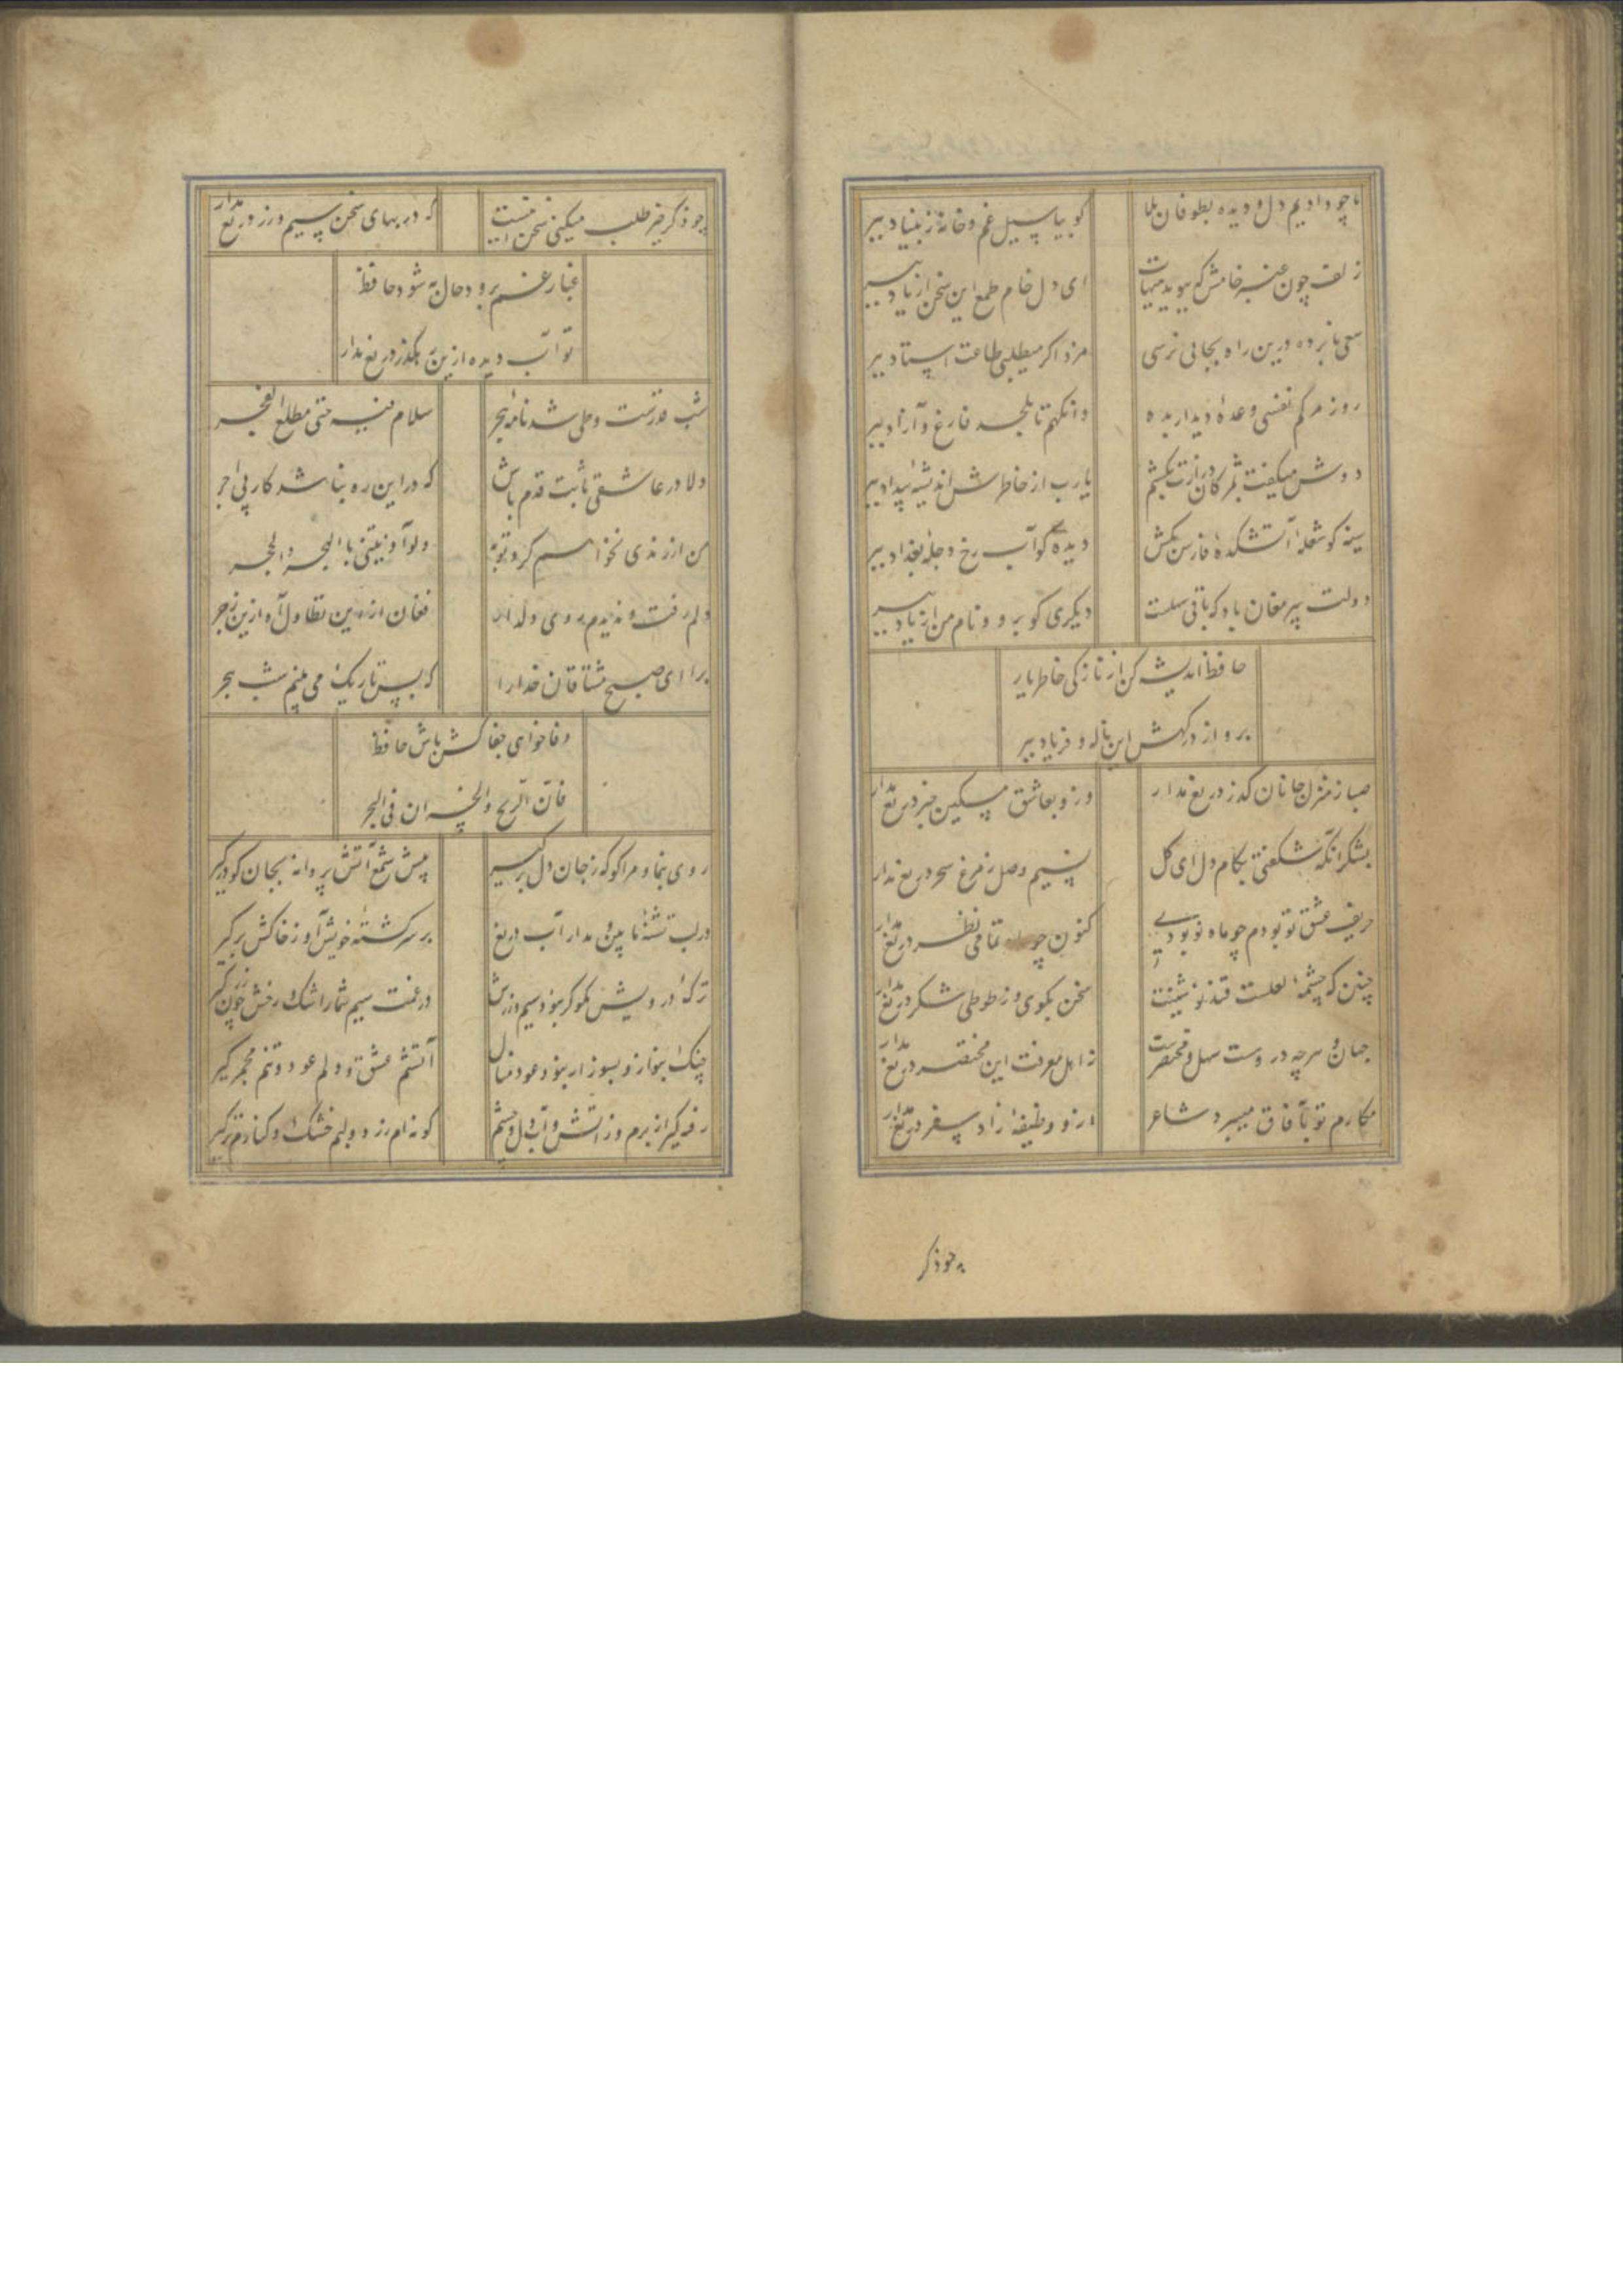 ما چو دادیم دل و دیده بطوفان بلا کو بیا سیل غم و خانه ز بنیاد ببر
زلف چون عنبر خامش که ببوید هیهات ای دل خام طمع این سخن از یاد ببر
سعی نابرده درین راه بجائی نرسی مزد اگر میطلبی طاعت استاد ببر
روز مرگم نفسی وعدهٔ دیدار بده وانگهم تا بلحد فارغ و آزاد ببر
دوش میگفت بمژگان درازت بکشم یارب از خاطرش اندیشهٔ بیداد ببر
سینه گو شعلهٔ آتشکدهٔ فارس بکش دیده گو آب رخ دجلهٔ بغداد ببر
دولت پیر مغان باد که باقی سهلست دیگری گو برو و نام من از یاد ببر
حافظ اندیشه کن از نازکی خاطر یار
برو از درگهش این ناله و فریاد ببر
صبا ز منزل جانان گذر دریغ مدار وزو بعاشق مسکین خبر دریغ مدار
بشکر آنکه شکفتی بکام دل ای گل نسیم وصل ز مرغ سحر دریغ مدار
حریف عشق تو بودم چو ماه نو بودی کنون چو ماه تمامی نظر دریغ مدار
چنین که چشمهٔ لعلست قند نوشینت سخن بگوی و ز طوطی شکر دریغ مدار
جهان و هرچه دروست سهل و مختصرست ز اهل معرفت این مختصر دریغ مدار
مکارم تو بآفاق میبرد شاعر ازو وظیفهٔ زاد سفر دریغ مدار
چو ذکر
چو ذکر خیر طلب میکنی سخن اینست که در بهای سخن سیم و زر دریغ مدار
غبار غم برود حال به شود حافظ
تو آب دیده ازین رهگذر دریغ مدار
شب قدرست و طی شد نامهٔ هجر سلام فیه حتی مطلع الفجر
دلا در عاشقی ثابت قدم باش که در این ره نباشد کار بی اجر
من از رندی نخواهم کرد توبه ولو آذیتنی بالهجر والحجر
دلم رفت و ندیدم روی دلدار فغان از این تطاول آه ازین زجر
برا ای صبح مشتاقان خدا را که بس تاریک می بینم شب هجر
وفا خواهی جفا کش باش حافظ
فان الربح والخسران فی التجر
روی بنما و مرا گو که ز جان دل برگیر پیش شمع آتش پروانه بجان گو درگیر
در لب تشنهٔ ما بین و مدار آب دریغ بر سر کشتهٔ خویش آ و ز خاکش برگیر
ترک درویش مگو گر نبود سیم و زرش در غمت سیم شمار اشک و رخش چون زر گیر
چنگ بنواز و بسوز ار نبود عود منال آتشم عشق و دلم عود و تنم مجمر گیر
رفته گیر از برم وز آتش و آب دل و چشم گونه ام زرد و لبم خشک و کنارم تر گیر